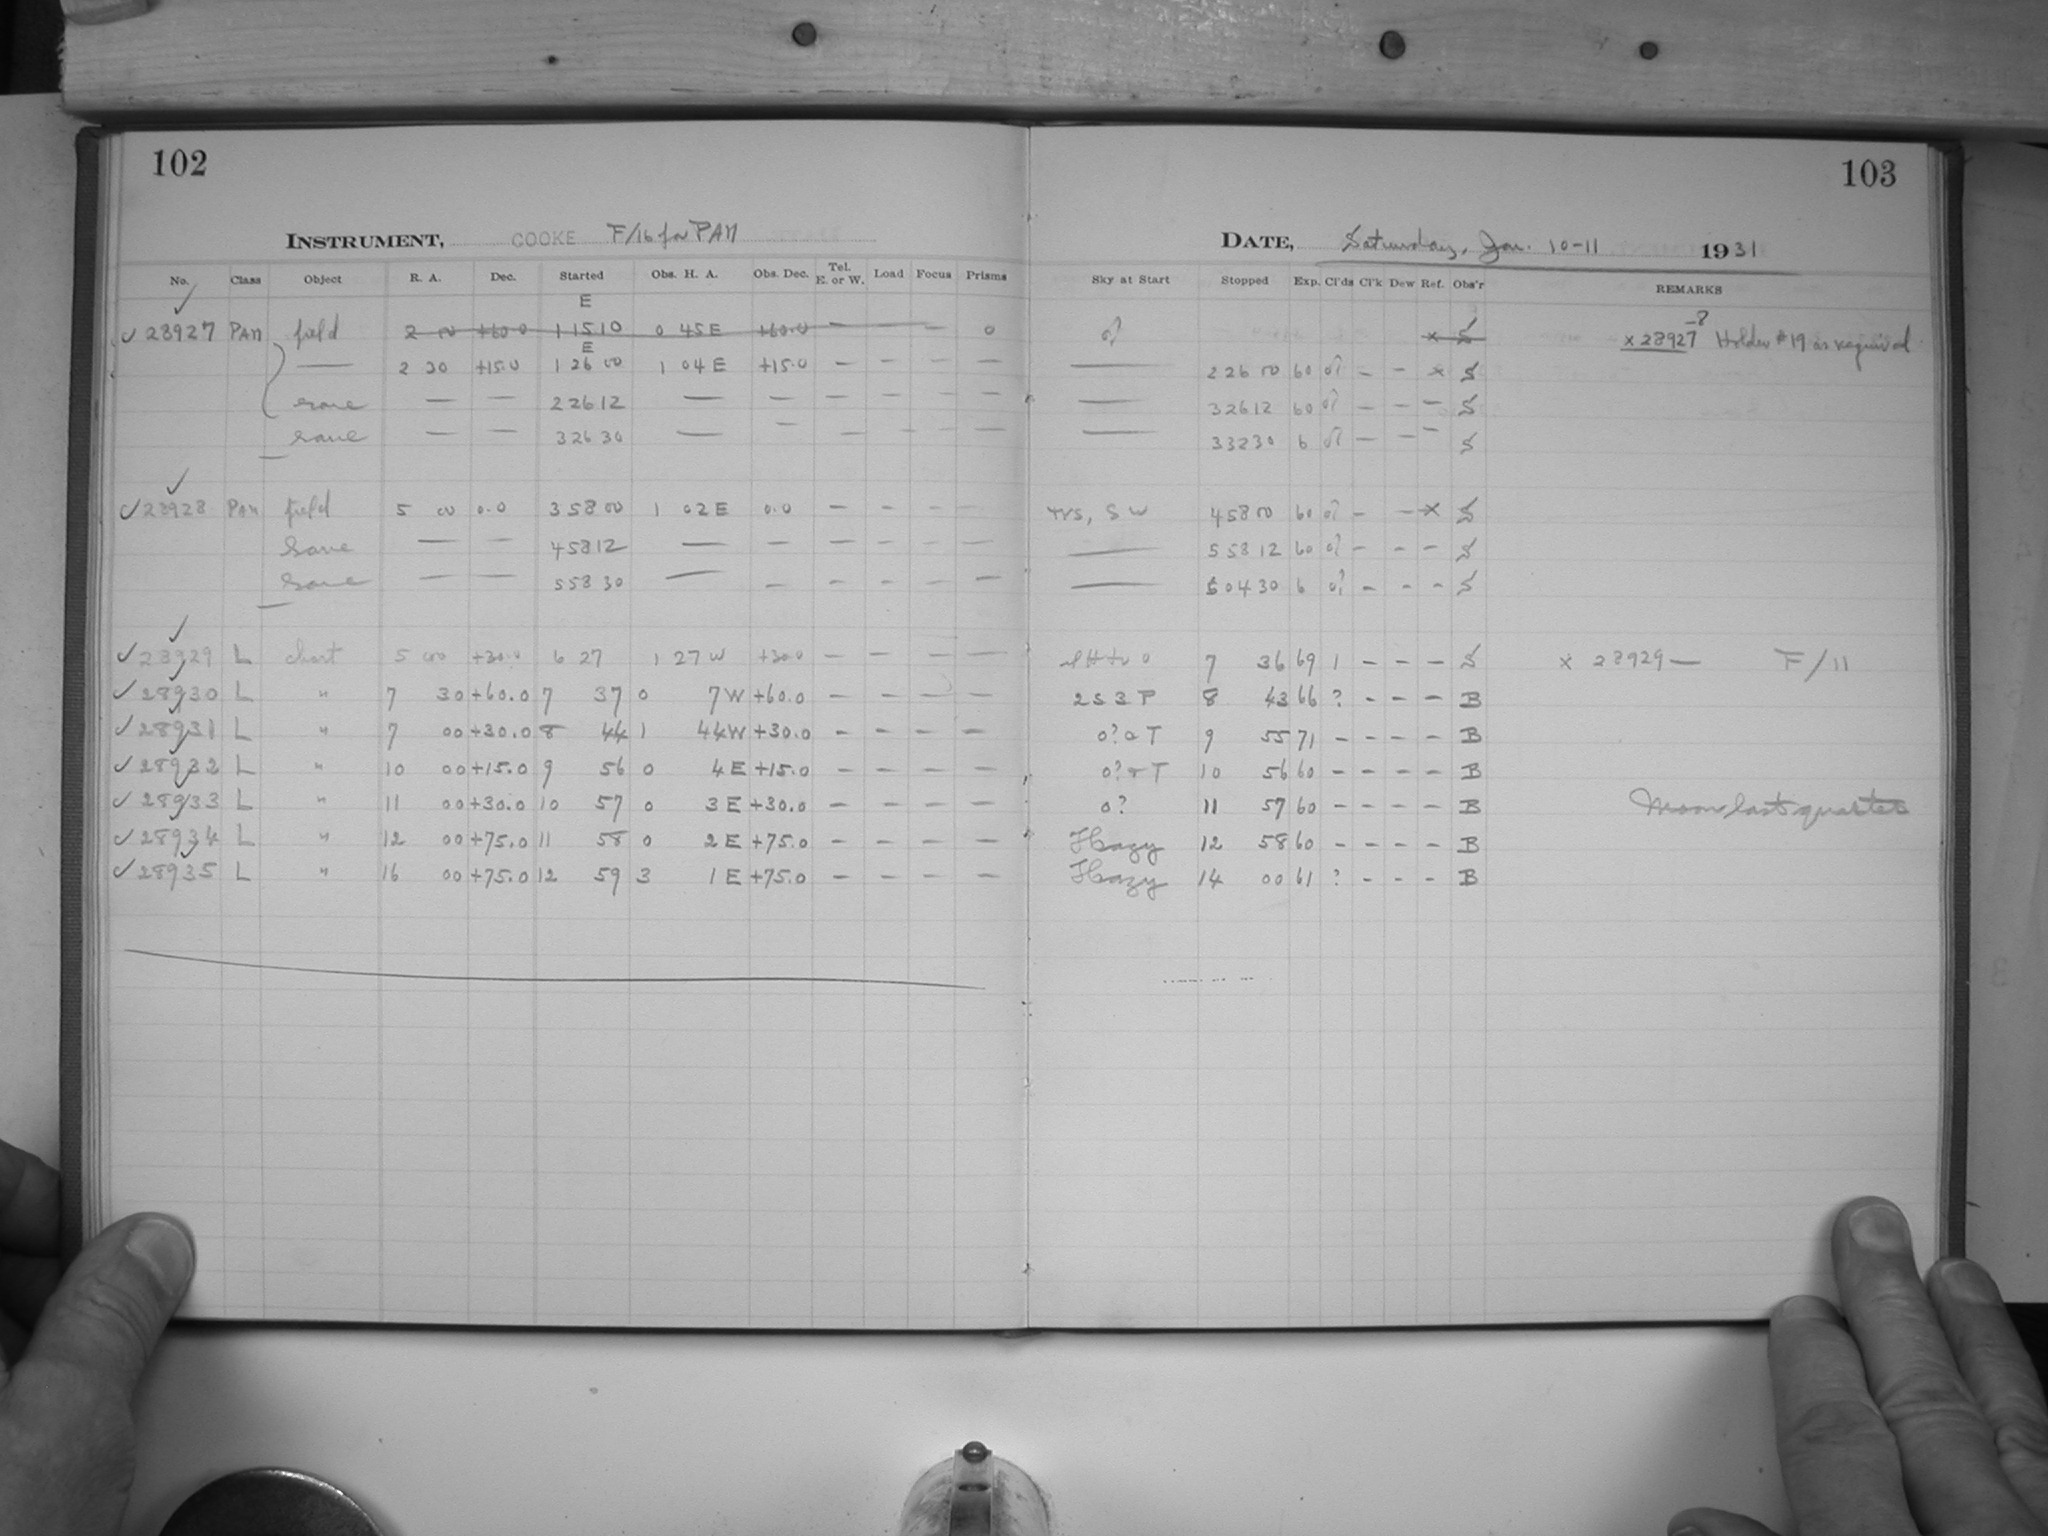 102
INSTRUMENT, COOKE F/16 for PAN
No. Class Object R. A. Dec. Started Obs. H. A. Obs. Dec. Tel. E. or W. Load Focus Prisms
E
✓ 28927 PAN field 2 00 +60.0 1 15 10 0 45 E +60.0 — — — — 0
E
— 2 30 +15.0 1 26 00 1 04 E +15.0 — — — —
same — — 2 26 12 — — — — — —
same — — 3 26 30 — — — — — —
✓ 28928 PAN field 5 00 0.0 3 58 00 1 02 E 0.0 — — — —
same — — 4 58 12 — — — — — —
same — — 5 58 30 — — — — — —
✓ 28929 L chart 5 00 +30.0 6 27 1 27 W +30.0 — — — —
✓ 28930 L " 7 30 +60.0 7 37 0 7 W +60.0 — — — —
✓ 28931 L " 7 00 +30.0 8 44 1 44 W +30.0 — — — —
✓ 28932 L " 10 00 +15.0 9 56 0 4 E +15.0 — — — —
✓ 28933 L " 11 00 +30.0 10 57 0 3 E +30.0 — — — —
✓ 28934 L " 12 00 +75.0 11 58 0 2 E +75.0 — — — —
✓ 28935 L " 16 00 +75.0 12 59 3 1 E +75.0 — — — —
103
DATE, Saturday, Jan. 10-11 1931
Sky at Start Stopped Exp. Cl'ds Cl'k Dew Ref. Obs'r REMARKS
0? × S × 28927-8 Holder #19 as required
— 2 26 00 60 0? — — × S
— 3 26 12 60 0? — — — S
— 3 32 30 6 0? — — — S
SW 4 58 00 60 0? — — × S
— 5 58 12 60 0? — — — S
— 6 04 30 6 0? — — — S
7 36 69 1 — — — S × 28929 — F/11
2 S 3 P 8 43 66 ? — — — B
0? T 9 55 71 — — — — B
0? T 10 56 60 — — — — B
0? 11 57 60 — — — — B Moon last quarter
Hazy 12 58 60 — — — — B
Hazy 14 00 61 ? — — — B